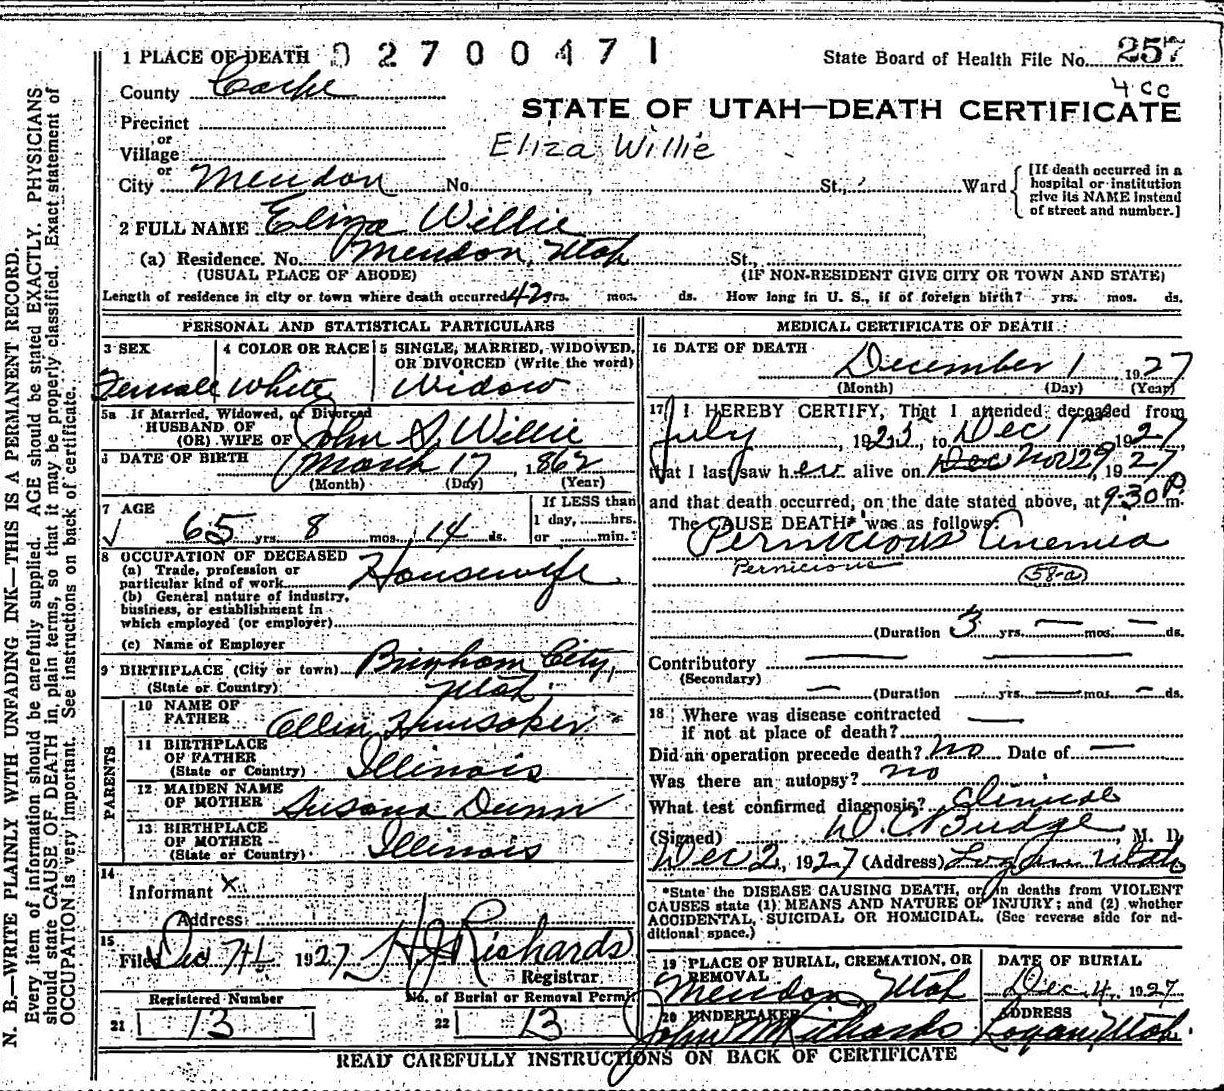 1 PLACE OF DEATH 02700471
State Board of Health File No. 257
4 cc
County Cache
STATE OF UTAH—DEATH CERTIFICATE
Precinct
or
Village
Eliza Willie
or
City Mendon No. , St., Ward
[If death occurred in a
hospital or institution
give its NAME instead
of street and number.]
2 FULL NAME Eliza Willie
(a) Residence. No. Mendon, Utah St.,
(USUAL PLACE OF ABODE) (IF NON-RESIDENT GIVE CITY OR TOWN AND STATE)
Length of residence in city or town where death occurred 42 yrs. mos. ds. How long in U. S., if of foreign birth? yrs. mos. ds.
PERSONAL AND STATISTICAL PARTICULARS
3 SEX
Female
4 COLOR OR RACE
White
5 SINGLE, MARRIED, WIDOWED,
OR DIVORCED (Write the word)
Widow
5a If Married, Widowed, or Divorced
HUSBAND OF
(OR) WIFE OF John S. Willie
6 DATE OF BIRTH March 17 1862
(Month) (Day) (Year)
7 AGE
65 yrs. 8 mos. 14 ds.
If LESS than
1 day, hrs.
or min.
8 OCCUPATION OF DECEASED
(a) Trade, profession or
particular kind of work Housewife
(b) General nature of industry,
business, or establishment in
which employed (or employer)
(c) Name of Employer
9 BIRTHPLACE (City or town) Brigham City,
(State or Country) Utah
PARENTS
10 NAME OF
FATHER Allen Hunsaker
11 BIRTHPLACE
OF FATHER
(State or Country) Illinois
12 MAIDEN NAME
OF MOTHER Susana Dunn
13 BIRTHPLACE
OF MOTHER
(State or Country) Illinois
14
Informant X
Address
15
Filed Dec 7th 1927 H J Richards
Registrar
Registered Number
21 13
No. of Burial or Removal Permit
22 13
MEDICAL CERTIFICATE OF DEATH
16 DATE OF DEATH
December 1 1927
(Month) (Day) (Year)
17 I HEREBY CERTIFY, That I attended deceased from
July , 1923, to Dec 1st 1927
that I last saw her alive on Dec Nov 29, 1927
and that death occurred, on the date stated above, at 9-30 P. m.
The CAUSE DEATH* was as follows:
Pernicious Anemia
Pernicious 58-a
(Duration 3 yrs. — mos. — ds.
Contributory
(Secondary)
(Duration yrs. mos. ds.
18 Where was disease contracted
if not at place of death?
Did an operation precede death? no Date of —
Was there an autopsy? no
What test confirmed diagnosis? Clinical
(Signed) D. C. Budge, M. D.
Dec 2, 1927 (Address) Logan Utah
*State the DISEASE CAUSING DEATH, or, in deaths from VIOLENT
CAUSES state (1) MEANS AND NATURE OF INJURY; and (2) whether
ACCIDENTAL, SUICIDAL OR HOMICIDAL. (See reverse side for ad-
ditional space.)
19 PLACE OF BURIAL, CREMATION, OR
REMOVAL
Mendon, Utah
DATE OF BURIAL
Dec. 4, 1927
20 UNDERTAKER
John M Richards
ADDRESS
Logan, Utah.
READ CAREFULLY INSTRUCTIONS ON BACK OF CERTIFICATE
N. B.—WRITE PLAINLY WITH UNFADING INK—THIS IS A PERMANENT RECORD.
Every item of information should be carefully supplied. AGE should be stated EXACTLY. PHYSICIANS
should state CAUSE OF DEATH in plain terms, so that it may be properly classified. Exact statement of
OCCUPATION is very important. See instructions on back of certificate.